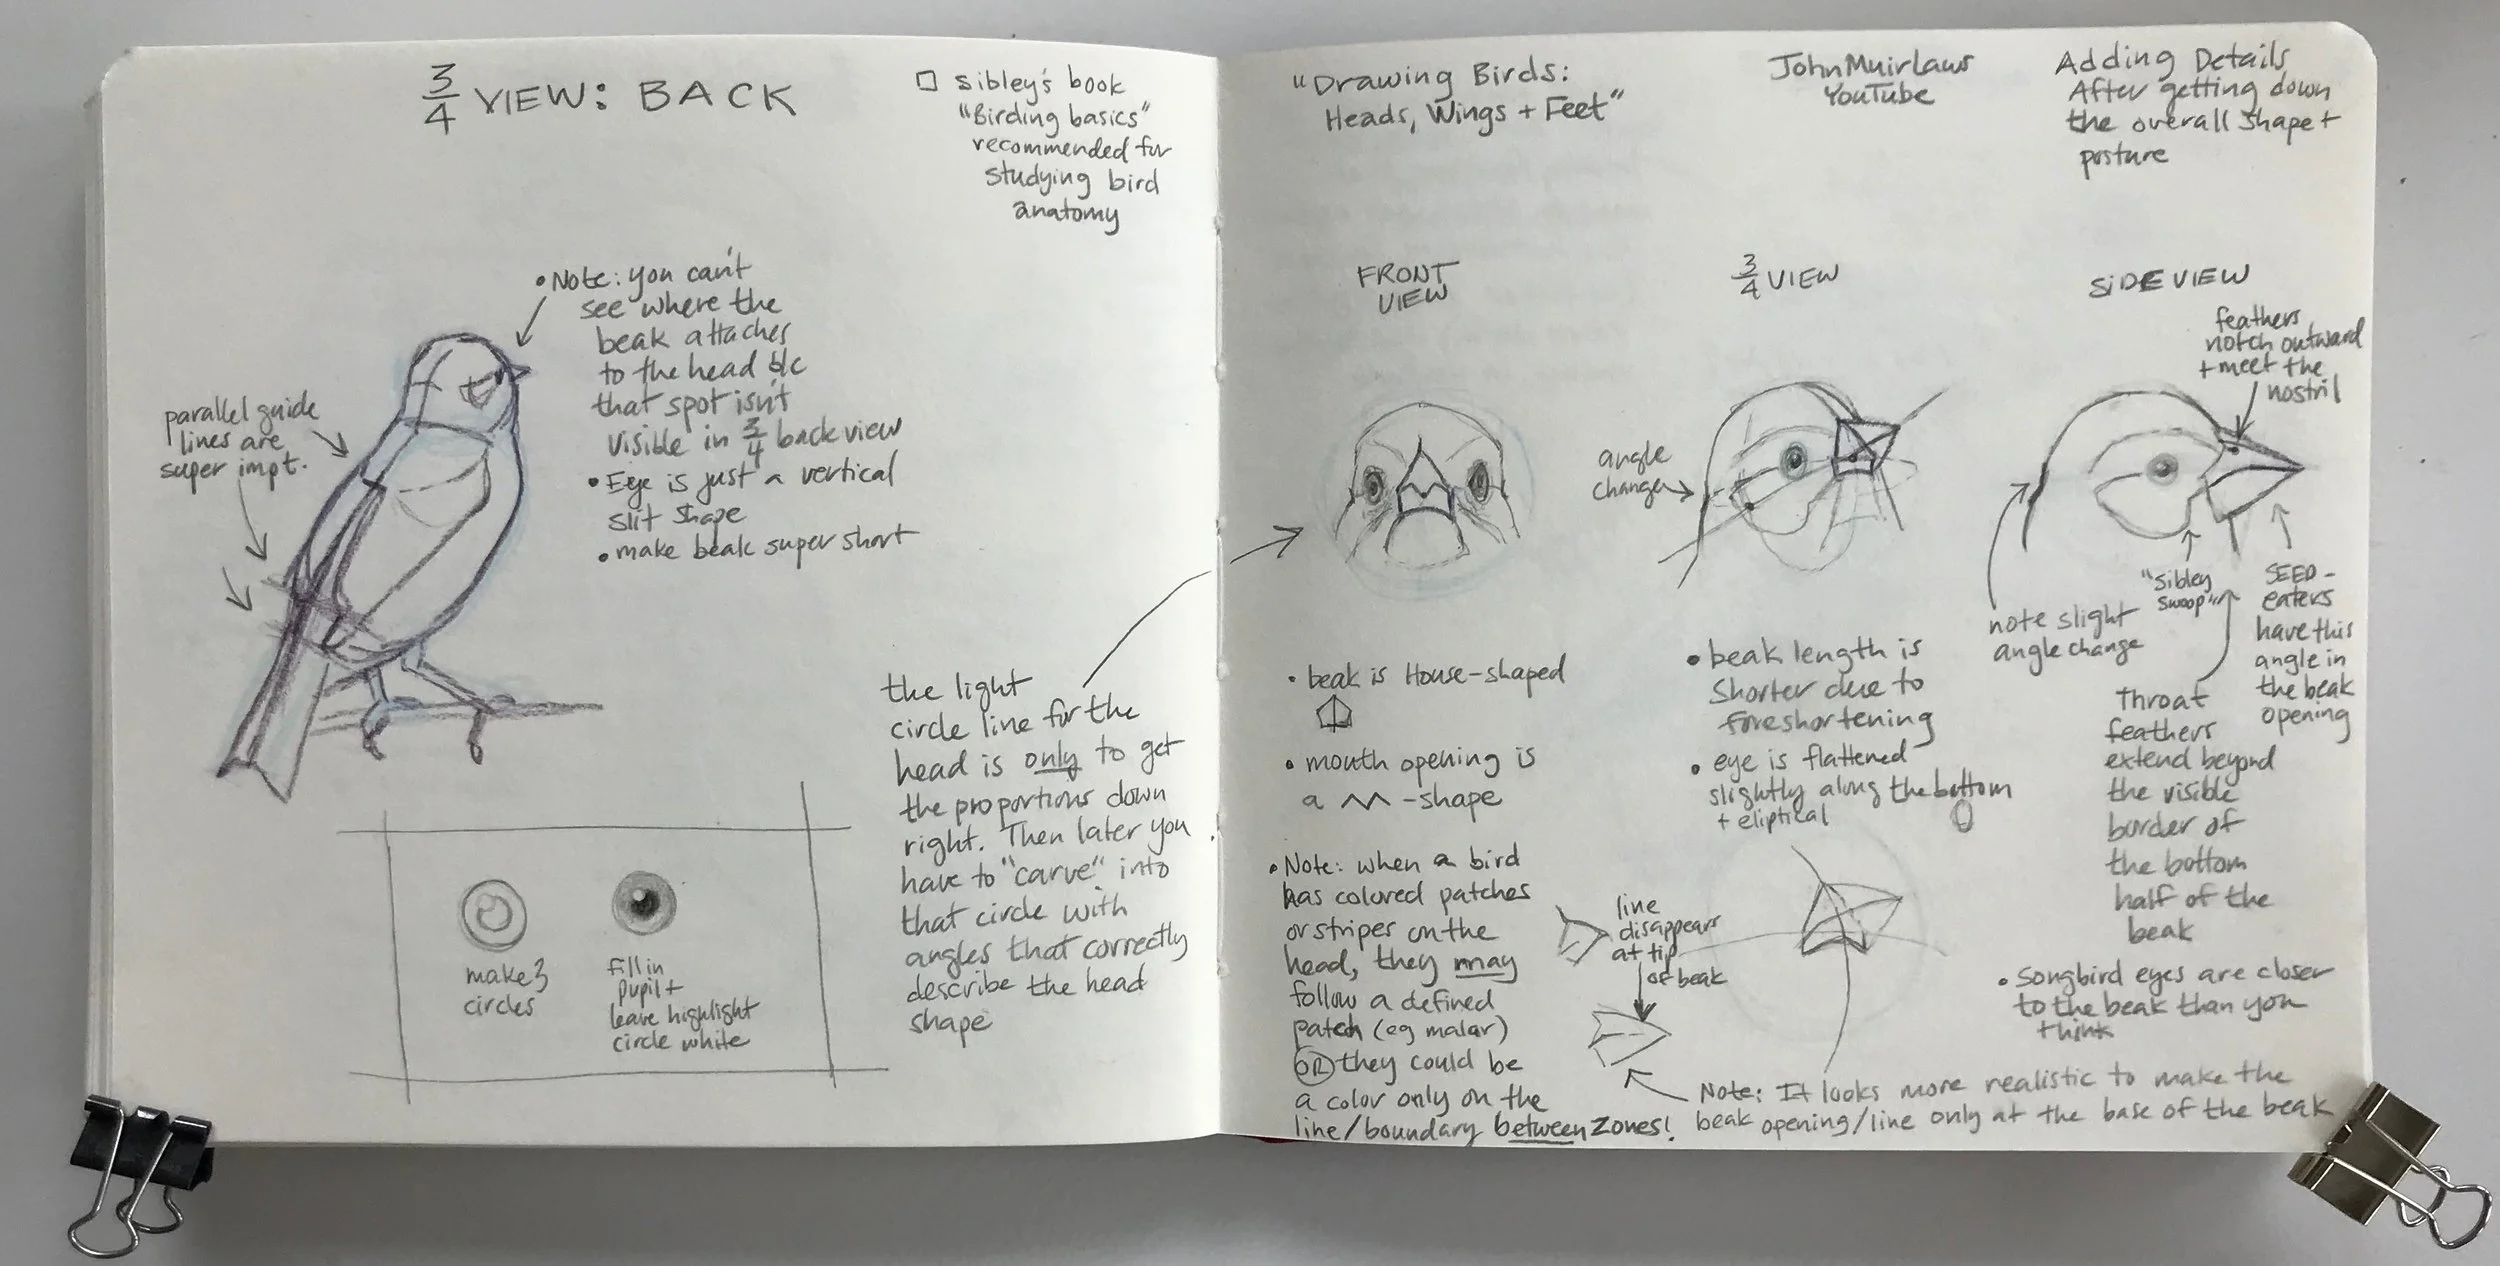 3/4 VIEW: BACK
□ Sibley's book
"Birding basics"
recommended for
studying bird
anatomy
• Note: you can't
see where the
beak attaches
to the head b/c
that spot isn't
visible in 3/4 back view
• Eye is just a vertical
slit shape
• make beak super short
parallel guide
lines are
super impt.
the light
circle line for the
head is only to get
the proportions down
right. Then later you
have to "carve" into
that circle with
angles that correctly
describe the head
shape
make 3
circles
fill in
pupil +
leave highlight
circle white
"Drawing Birds:
Heads, Wings + Feet"
John Muir Laws
YouTube
Adding Details
After getting down
the overall shape +
posture
FRONT
VIEW
• beak is House-shaped
• mouth opening is
a ʌʌ -shape
• Note: when a bird
has colored patches
or stripes on the
head, they may
follow a defined
patch (eg malar)
OR they could be
a color only on the
line/boundary between zones!
3/4 VIEW
angle
change
• beak length is
shorter due to
foreshortening
• eye is flattened
slightly along the bottom
+ eliptical
line
disappears
at tip
of beak
Note: It looks more realistic to make the
beak opening/line only at the base of the beak
SIDE VIEW
feathers
notch outward
+ meet the
nostril
note slight
angle change
"Sibley
swoop"
SEED-
eaters
have this
angle in
the beak
opening
Throat
feathers
extend beyond
the visible
border of
the bottom
half of the
beak
• songbird eyes are closer
to the beak than you
think